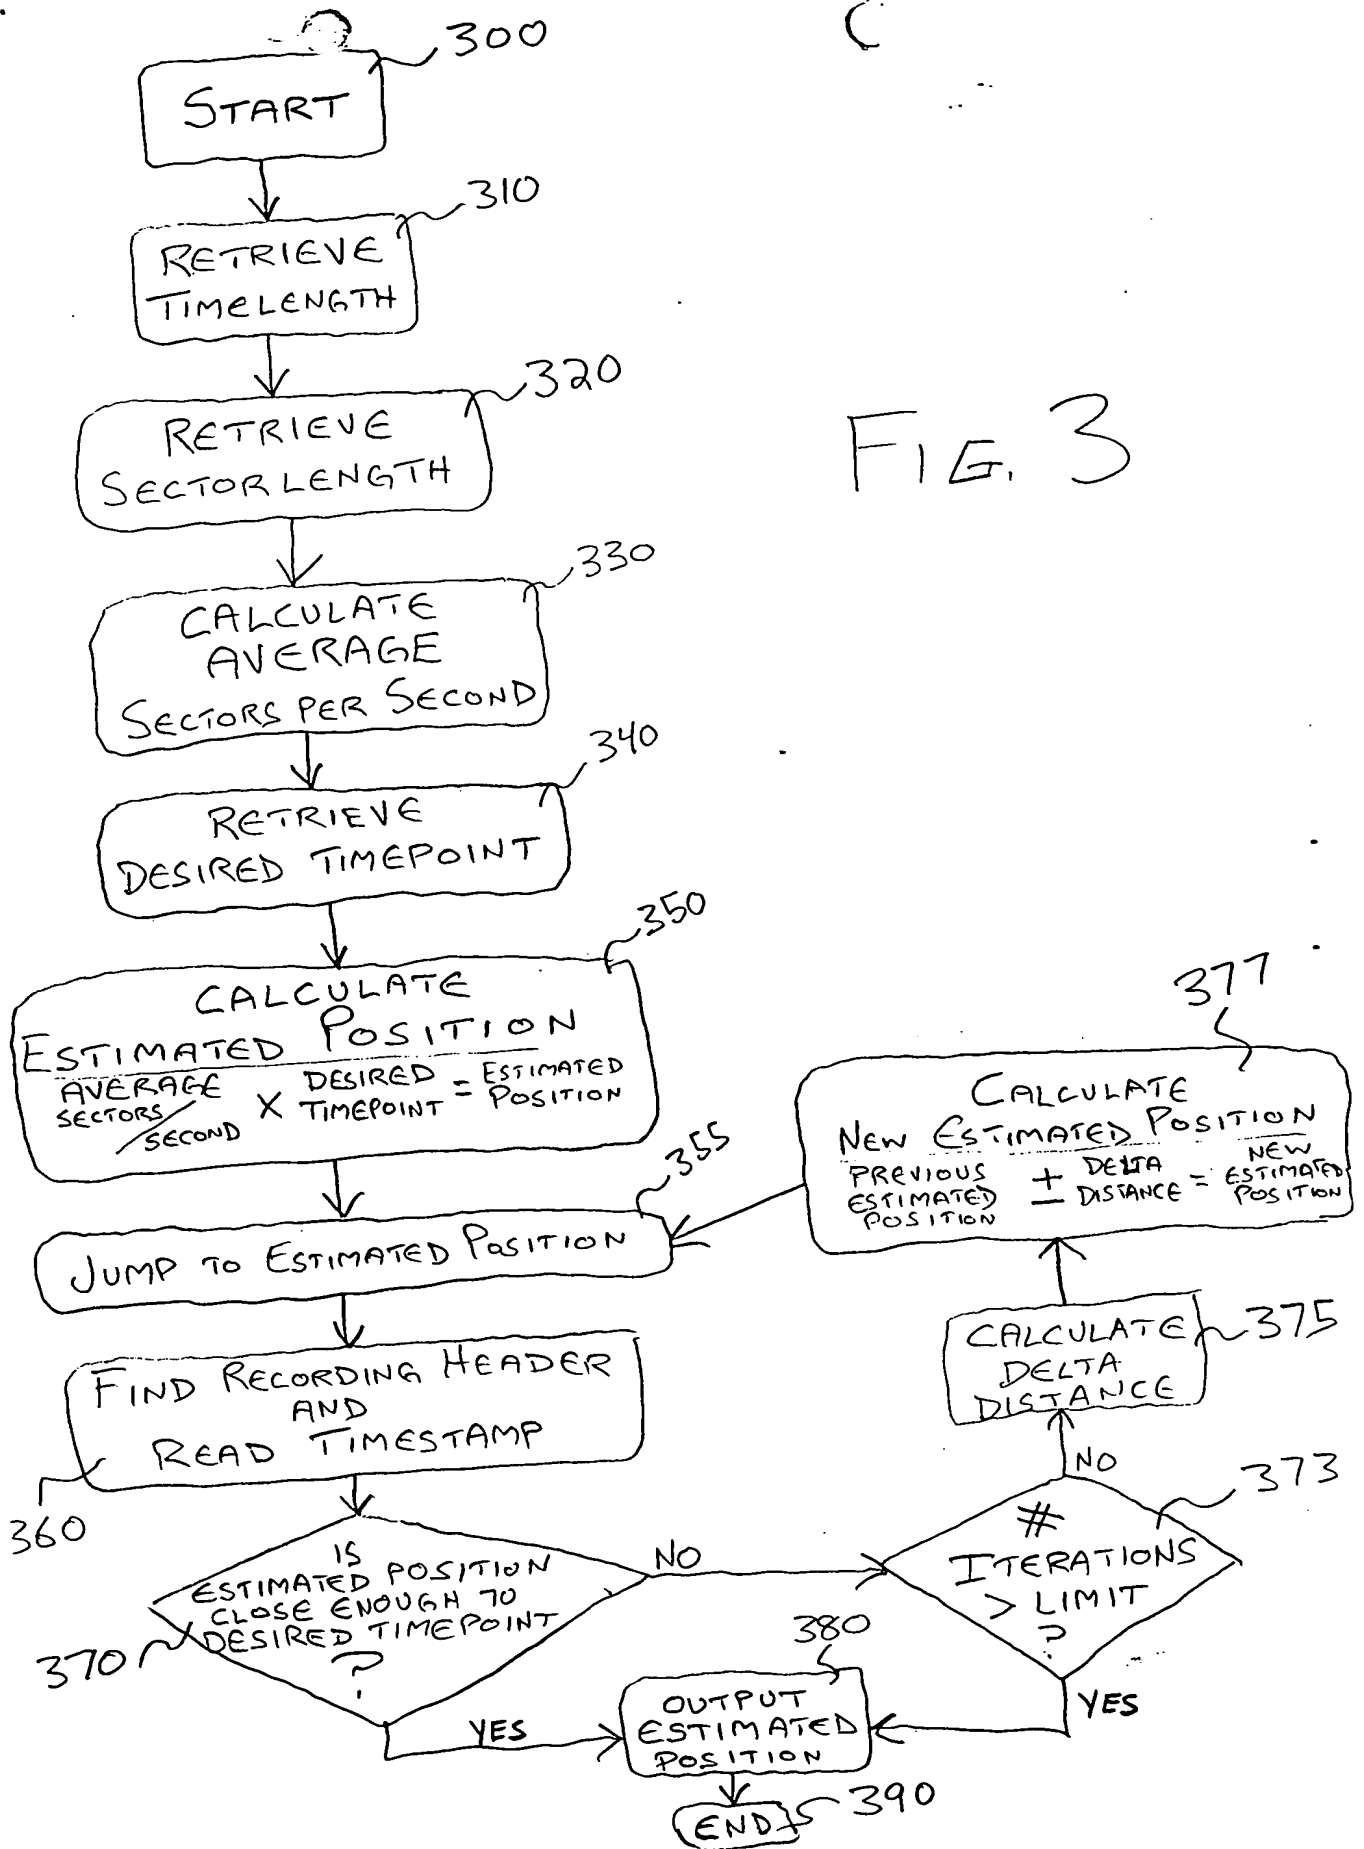 300
START
310
RETRIEVE
TIMELENGTH
320
RETRIEVE
SECTOR LENGTH
FIG. 3
330
CALCULATE
AVERAGE
SECTORS PER SECOND
340
RETRIEVE
DESIRED TIMEPOINT
350
CALCULATE
ESTIMATED POSITION
AVERAGE SECTORS/SECOND X DESIRED TIMEPOINT = ESTIMATED POSITION
355
JUMP TO ESTIMATED POSITION
FIND RECORDING HEADER
AND
READ TIMESTAMP
360
IS
ESTIMATED POSITION
CLOSE ENOUGH TO
DESIRED TIMEPOINT
?
370
NO
YES
373
#
ITERATIONS
> LIMIT
?
NO
YES
375
CALCULATE
DELTA
DISTANCE
377
CALCULATE
NEW ESTIMATED POSITION
PREVIOUS ESTIMATED POSITION ± DELTA DISTANCE = NEW ESTIMATED POSITION
380
OUTPUT
ESTIMATED
POSITION
END
390